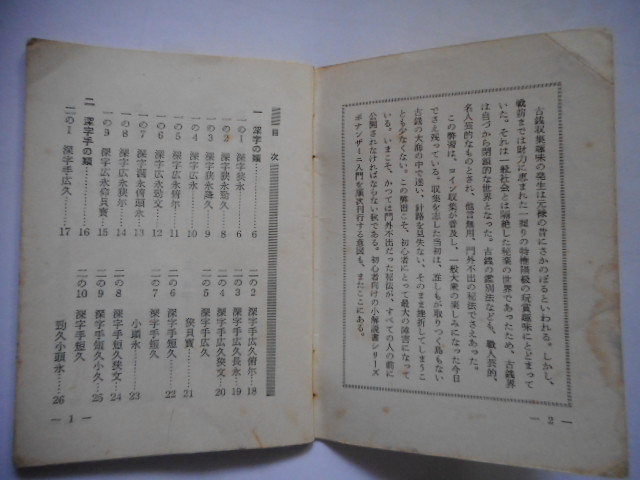 古銭収集趣味の発生は元禄の昔にさかのぼるといわれる。しかし、
戦前までは財力に恵まれた一握りの特権階級の玩賞趣味にとどまって
いた。それは一般社会とは隔絶した秘楽の世界であったため、古銭界
は自づから閉鎖的な世界となった。古銭の鑑別法なども、職人芸的、
名人芸的なものとされ、他言無用、門外不出の秘法でさえあった。
この弊習は、コイン収集が普及し、一般大衆の楽しみになった今日
でさえ残っている。収集を志した当初は、誰しもが取りつく島もない
古銭の大海の中で迷い、針路を見失い、そのまま挫折してしまうこ
とも少なくない。この弊習こそ、初心者にとって最大の障害になって
いる。いまこそ、かつては門外不出だった秘法が、すべての人の前に
公開されなければならない秋である。初心者向けの小解説書シリーズ
ボナンザーニ入門を順次刊行する意図も、またここにある。
— 2 —
目 次
一 深字の類……6
一の1 深字狭永……6
一の2 深字狭永勁久……8
一の3 深字狭永降久……9
一の4 深字広永……10
一の5 深字広永俯尔……11
一の6 深字広永勁文……12
一の7 深字濶永俯頭永……13
一の8 深字広永狭尔……14
一の9 深字広永仰貝寳……15
二 深字手の類……16
二の1 深字手広久……17
二の2 深字手広久俯尔……18
二の3 深字手広久長永……19
二の4 深字手広久狭文……20
二の5 深字手広久
俯貝寳……21
二の6 深字手短久……22
二の7 深字手短久
小頭永……23
二の8 深字手短久狭文……24
二の9 深字手短久小久……25
二の10 深字手短久
勁久小頭永……26
— 1 —